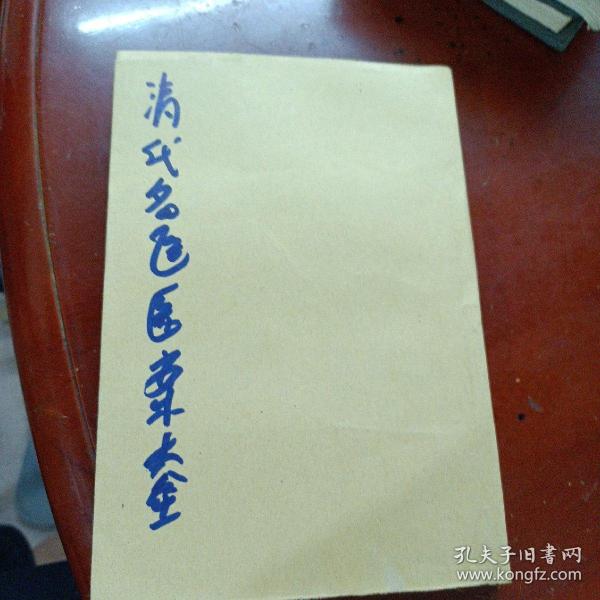 清代名医医案大全
孔夫子旧書网
www.kongfz.com